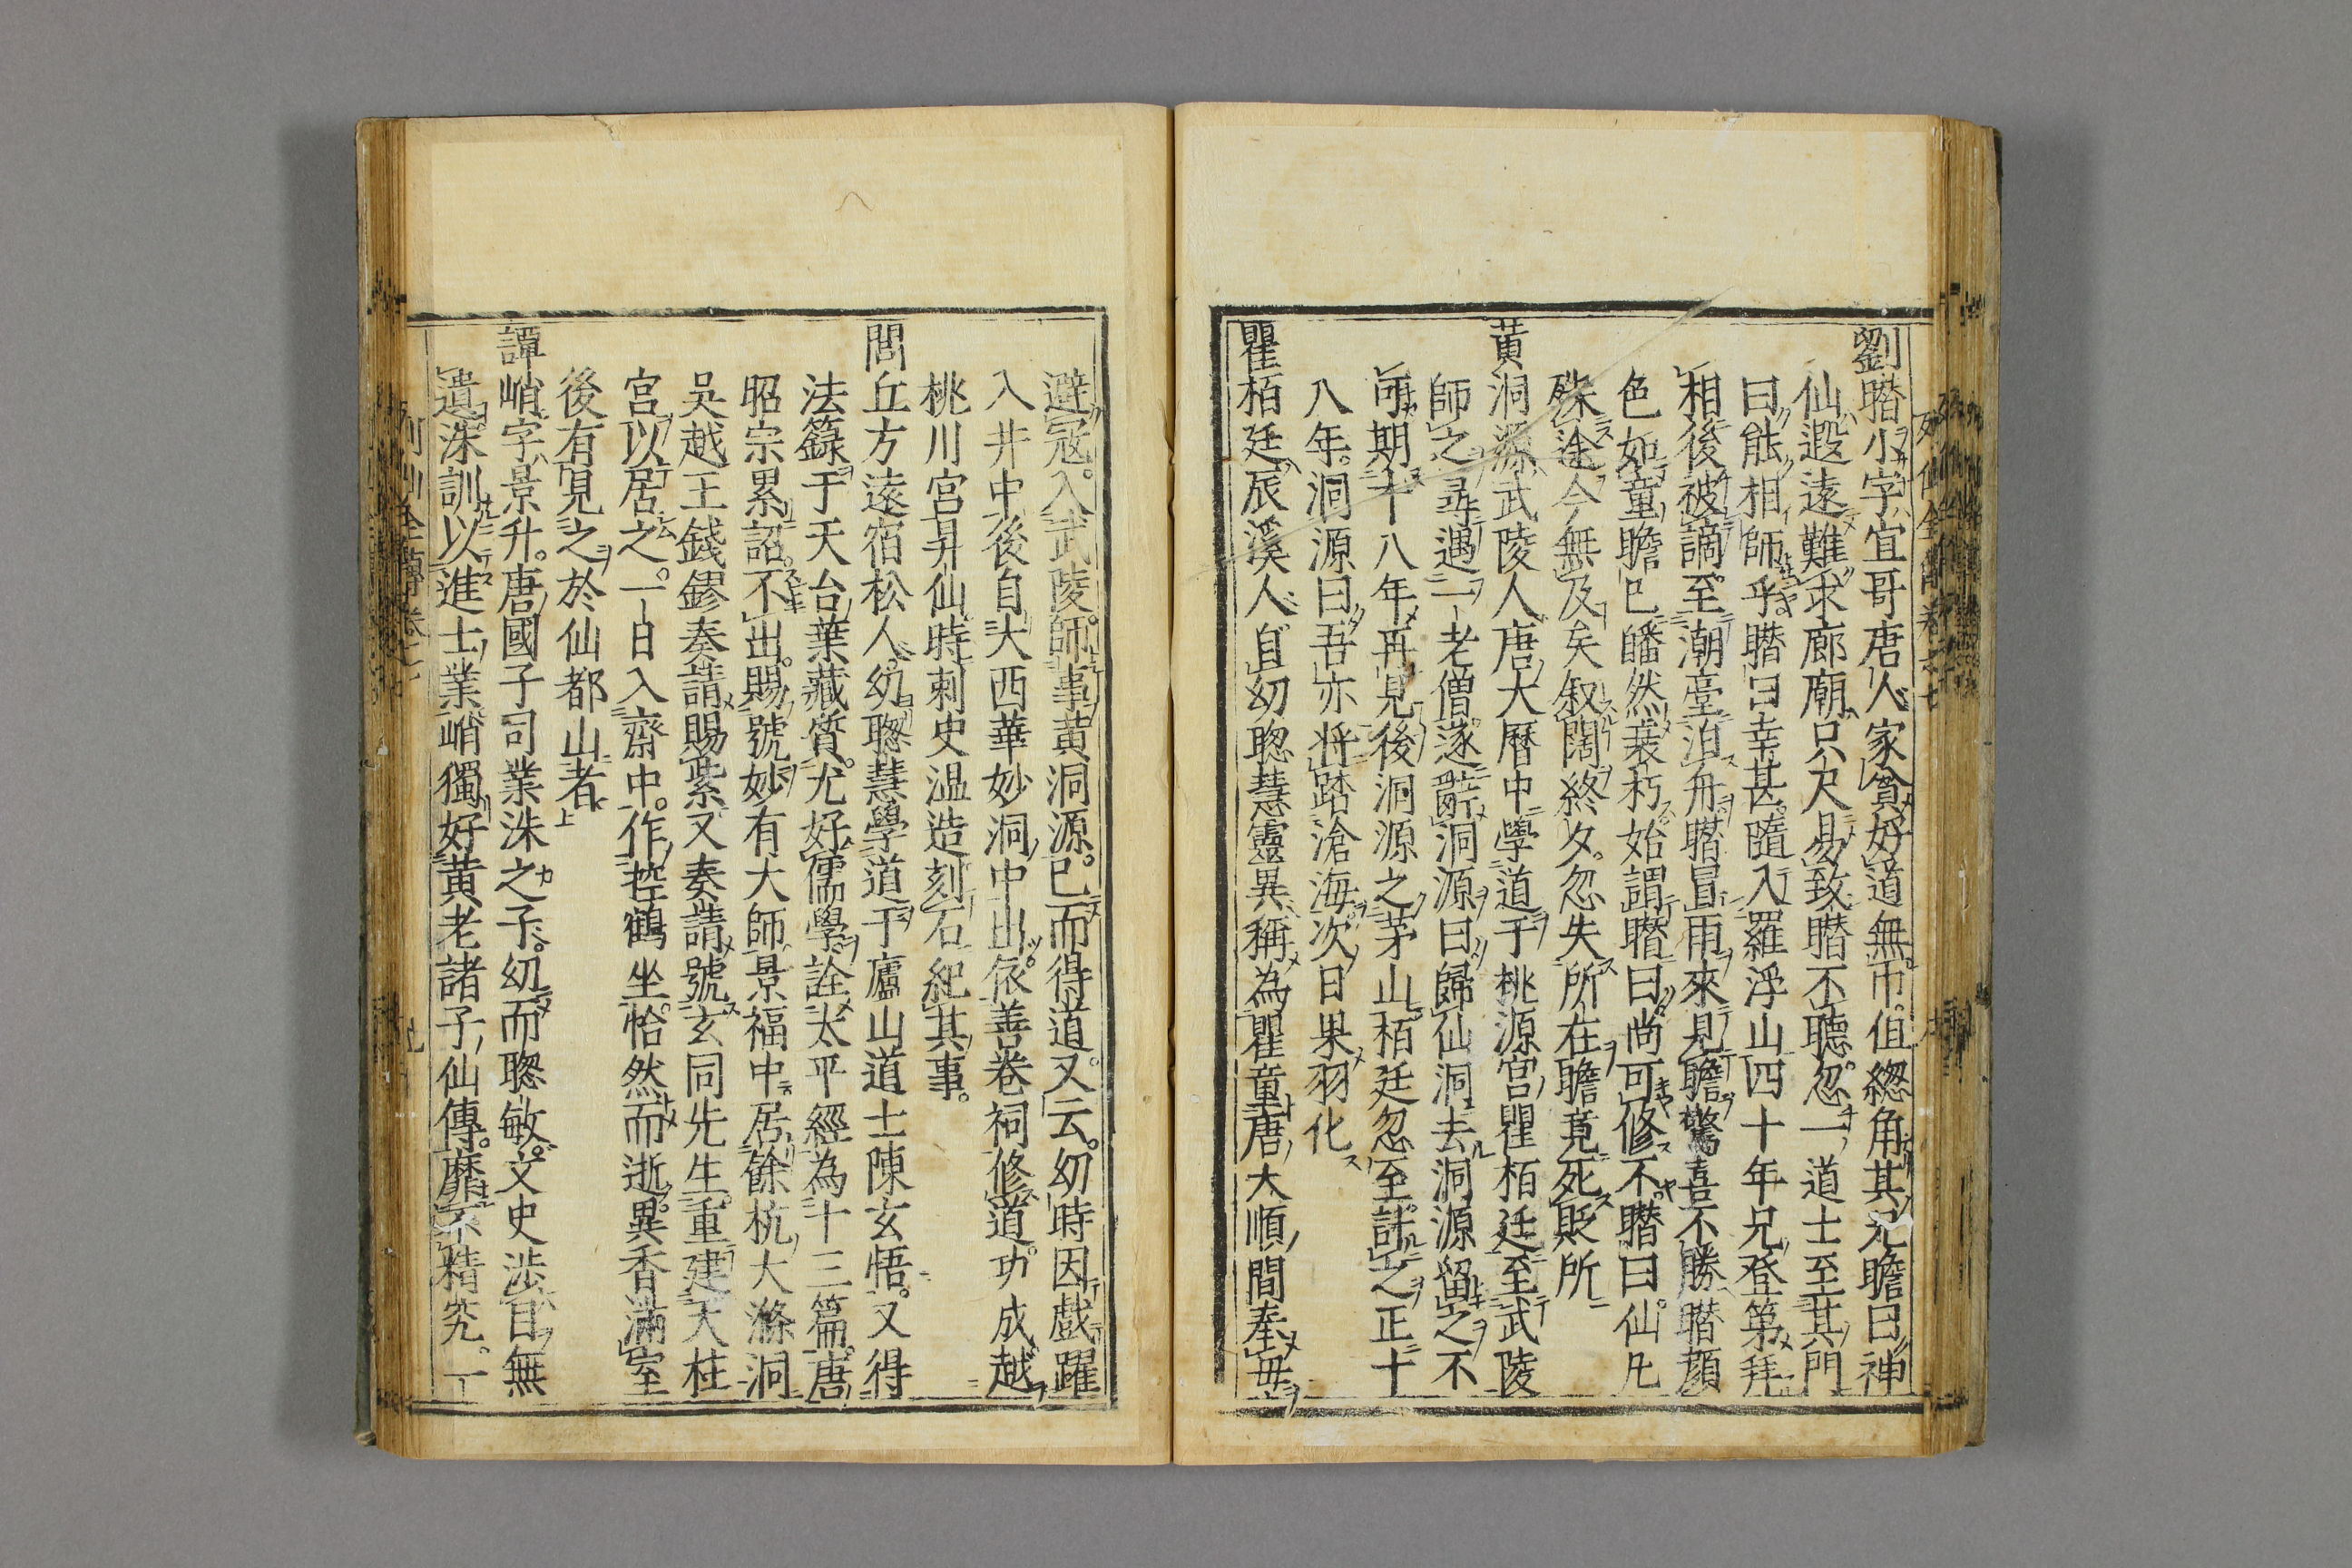 劉㬱小字宜哥唐人家貧好道無巾但緫角其兄瞻曰神
仙遐遠難求廊廟只尺易致㬱不聽忽一道士至其門
曰能相師乎㬱曰幸甚隨入羅浮山四十年兄登第拜
相後被謫至潮臺泊舟㬱冒雨來見瞻驚喜不勝㬱顔
色如童瞻已皤然衰朽始謂㬱曰尚可修不㬱曰仙凡
殊途今無及矣叙闊終夕忽失所在瞻竟死貶所
黄洞源武陵人唐大曆中學道于桃源宮瞿栢廷至武陵
師之尋遇一老僧遂辭洞源曰歸仙洞去洞源留之不
可期十八年再見後洞源之茅山栢廷忽至計之正十
八年洞源曰吾亦将踏滄海次日果羽化
瞿栢廷辰溪人自幼聦慧靈異稱為瞿童唐大順間奉母
避冦入武陵師事黄洞源已而得道又云幼時因戲躍
入井中後自大西華妙洞中出依善卷祠修道功成越
桃川宮昇仙時刺史温造刻石紀其事
閭丘方遠宿松人幼聦慧學道于廬山道士陳玄悟又得
法籙于天台葉藏質尤好儒學詮太平經為十三篇唐
昭宗累詔不出賜號妙有大師景福中居餘杭大滌洞
吴越王錢鏐奏請賜紫又奏請號玄同先生重建天柱
宮以居之一日入齋中作控鶴坐恰然而逝異香滿室
後有見之於仙都山者
譚峭字景升唐國子司業洙之子幼而聦敏文史涉目無
遺洙訓以進士業峭獨好黄老諸子仙傳靡不精究一